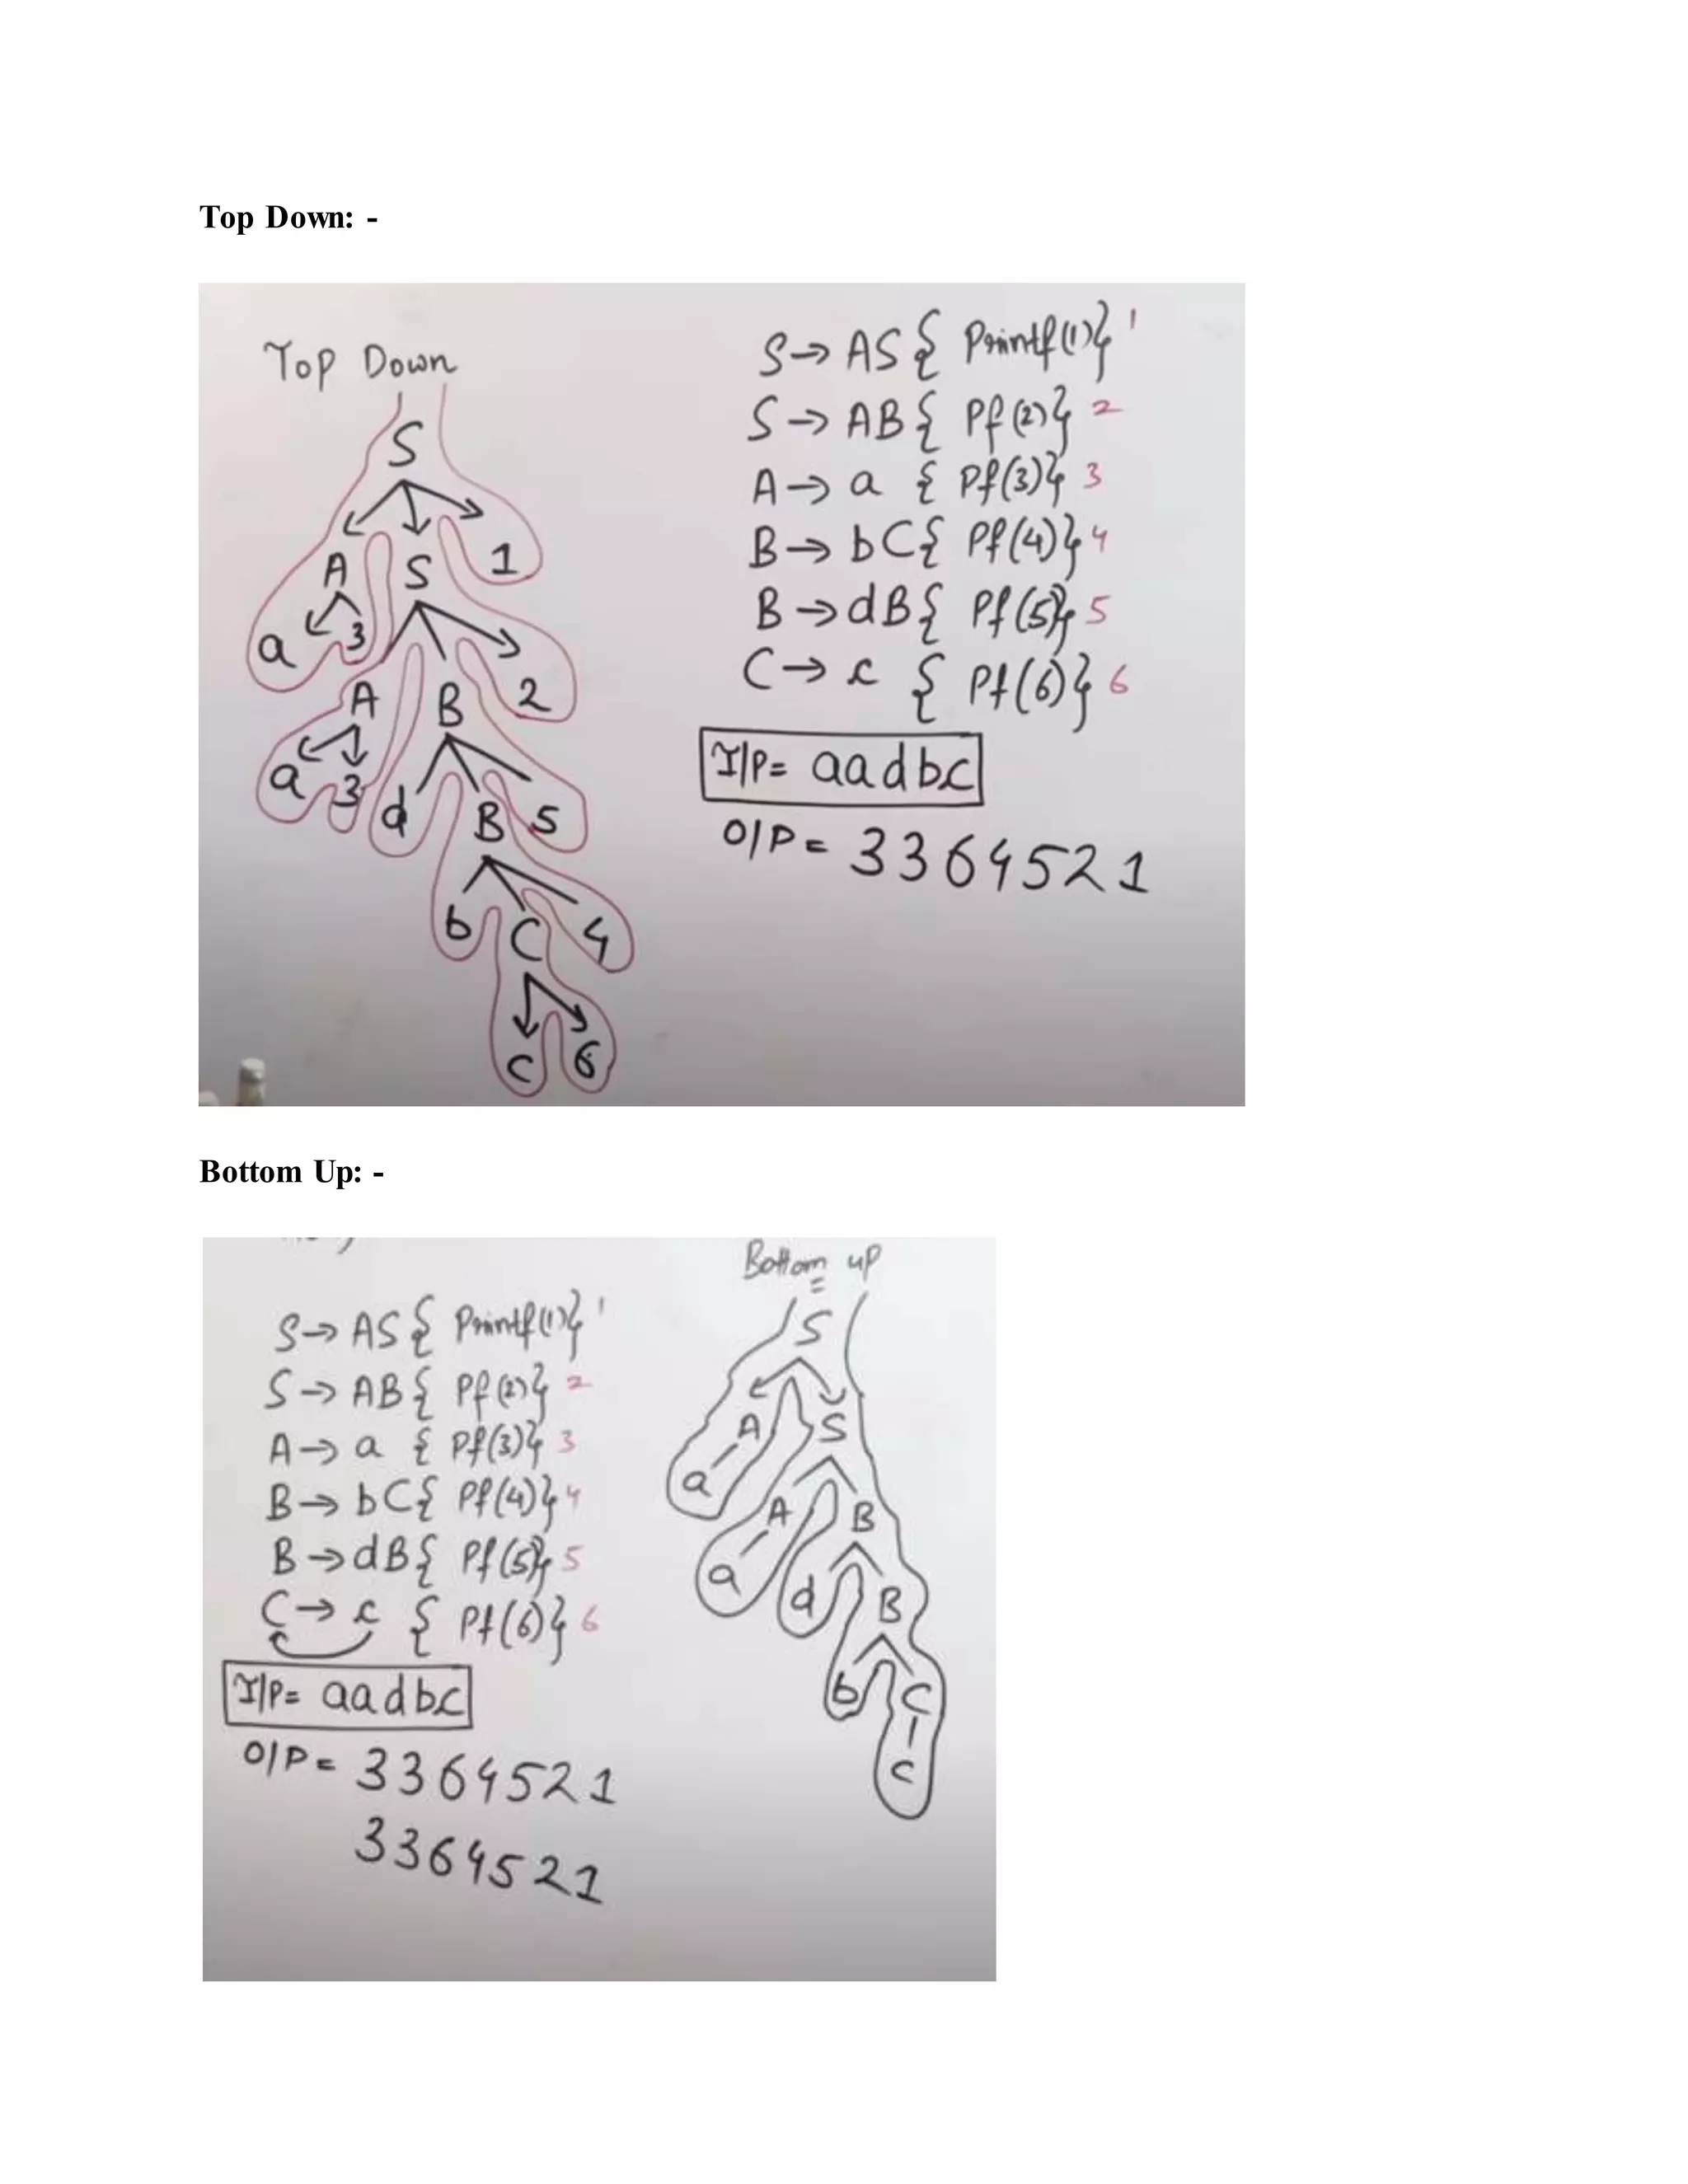 Top Down: -
Top Down
S
A S 1
a 3
A B 2
a 3 d B 5
b C 4
c 6
S → AS { Printf(1)} 1
S → AB { Pf(2)} 2
A → a { Pf(3)} 3
B → bC { Pf(4)} 4
B → dB { Pf(5)} 5
C → c { Pf(6)} 6
I/P = aadbc
O/P = 3364521
Bottom Up: -
S → AS { Printf(1)} 1
S → AB { Pf(2)} 2
A → a { Pf(3)} 3
B → bC { Pf(4)} 4
B → dB { Pf(5)} 5
C → c { Pf(6)} 6
I/P = aadbc
O/P = 3364521
3364521
Bottom up
S
A S
a A B
a d B
b C
c